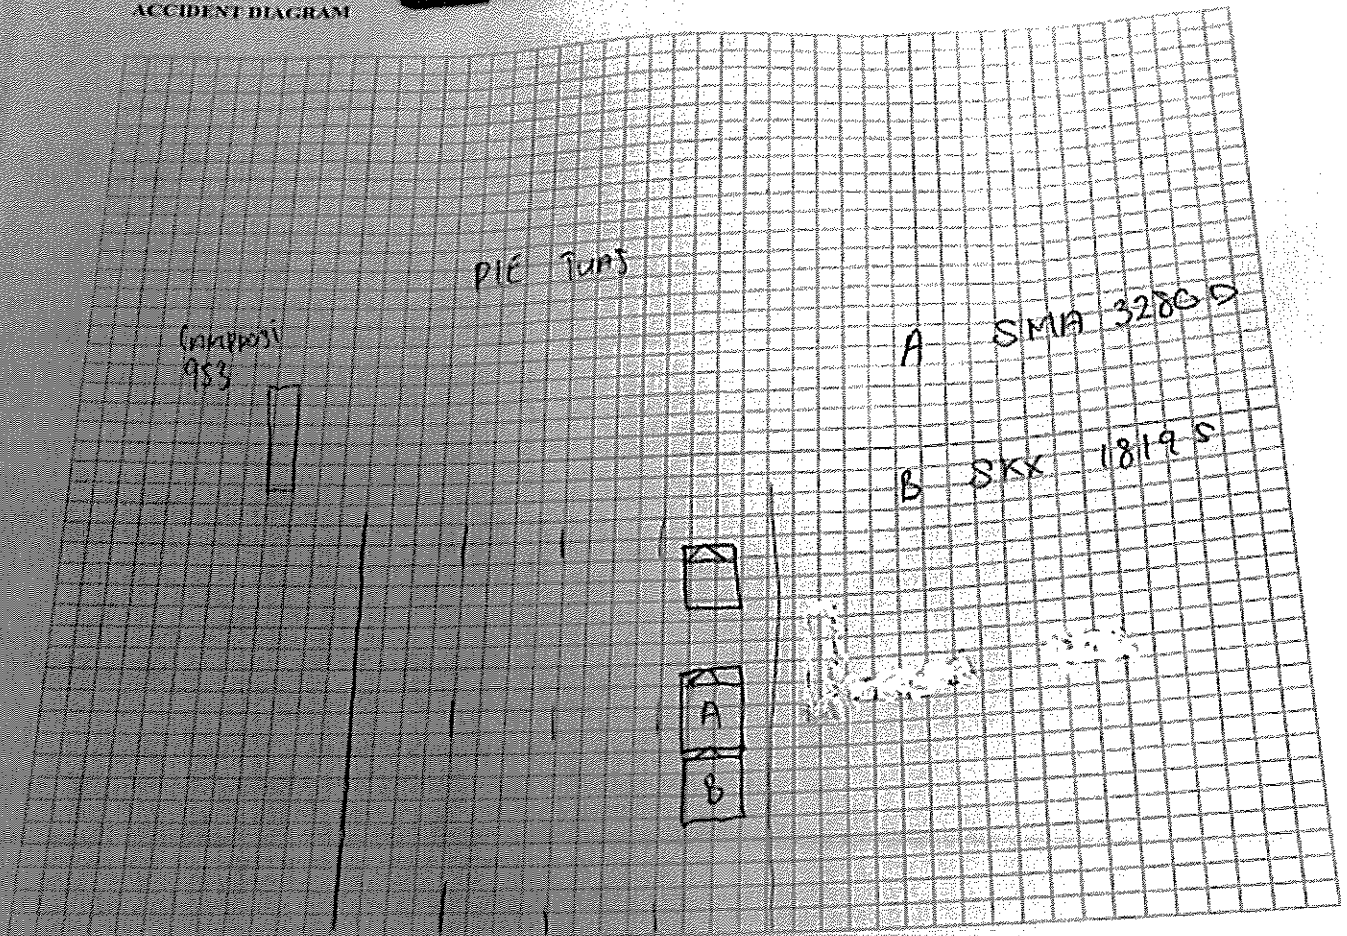 ACCIDENT DIAGRAM
PIE TUAS
lamppost
953
A SMA 3280 D
B SKX 1819 S
A
B